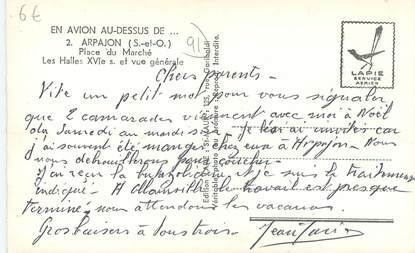 6€
EN AVION AU-DESSUS DE ...
2. ARPAJON (S.-et-O.)
Place du Marché
Les Halles XVIe s. et vue générale
91
LAPIE
SERVICE
AERIEN
Chers parents -
Vite un petit mot pour vous signaler
que 2 camarades viennent avec moi à Noël
du Samedi au Je les ai invités car
j'ai souvent été manger chez eux à Arpajon. Vous
nous pour coucher -
J'ai reçu la et je suis le traitement
indiqué - A le travail est presque
terminé nous attendons les vacances.
Gros baisers à tous trois -